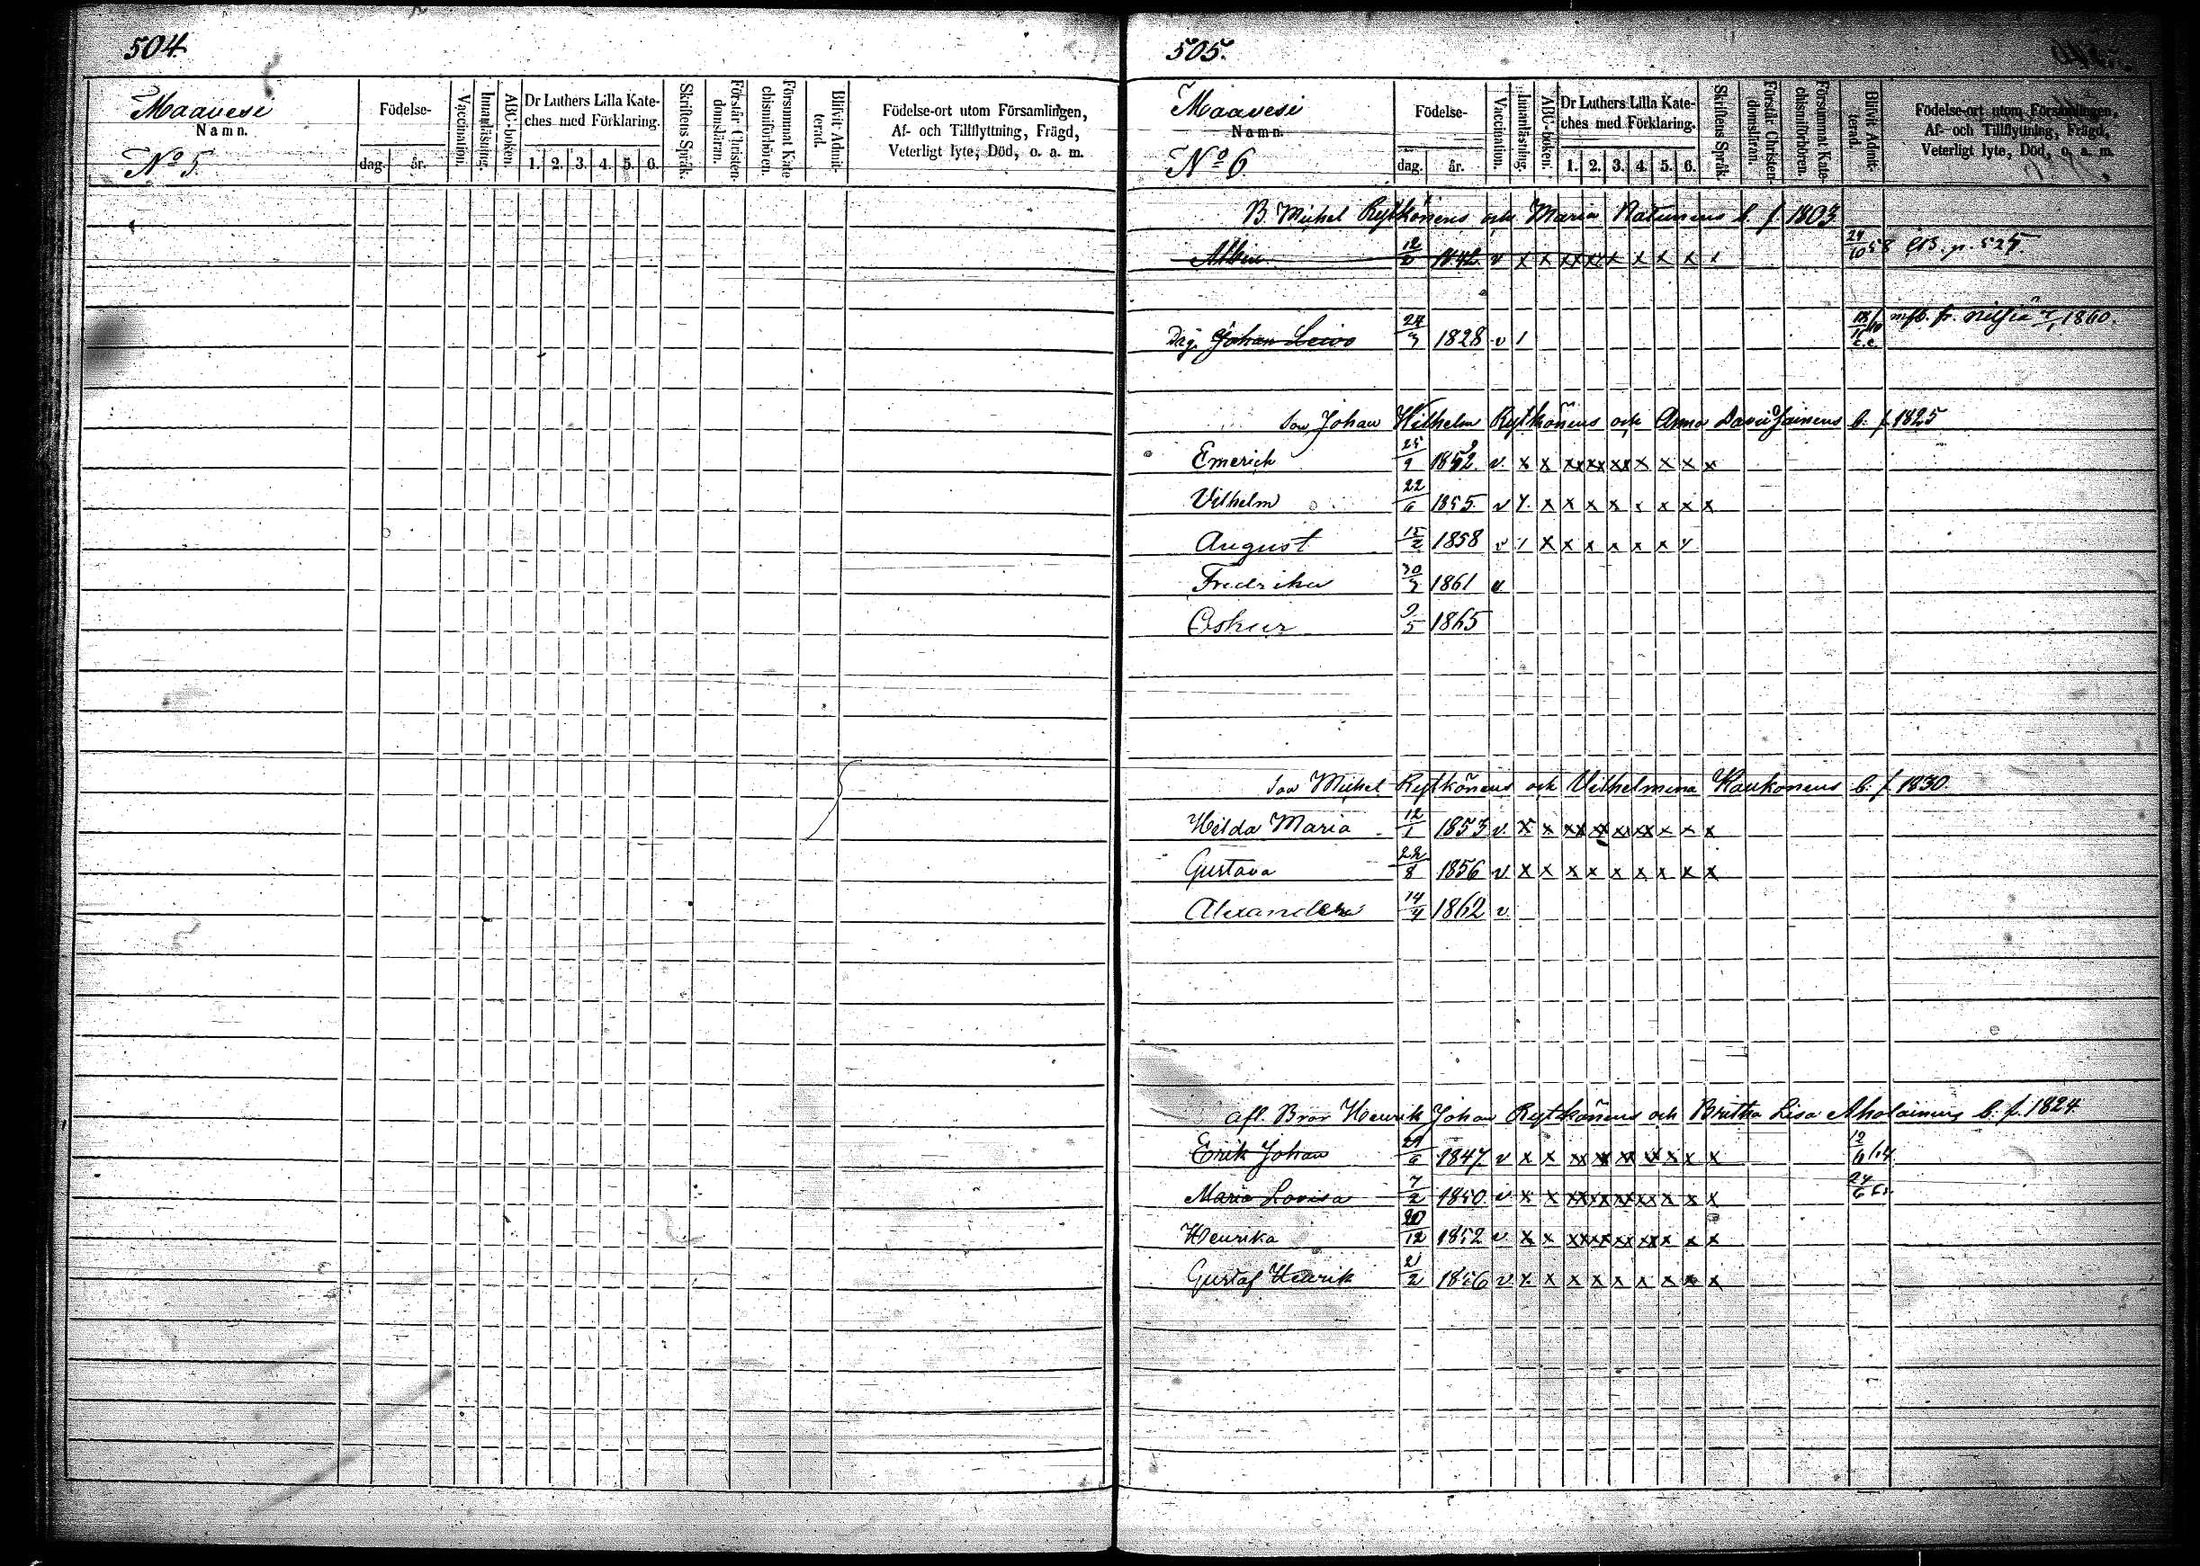 504.
Maavesi
Namn.
No 5.
Födelse-
dag.
år.
Vaccination.
Innanläsning.
ABC-boken.
Dr Luthers Lilla Kate-
ches med Förklaring.
1. 2. 3. 4. 5. 6.
Skriftens Språk.
Förstår Christen-
domsläran.
Försummat Kate-
chismiförhören.
Blifvit Admit-
terad.
Födelse-ort utom Församlingen,
Af- och Tillflyttning, Frägd,
Veterligt lyte, Död, o. a. m.
505.
Maavesi
Namn.
No 6
Födelse-
dag.
år.
Vaccination.
Innanläsning.
ABC-boken.
Dr Luthers Lilla Kate-
ches med Förklaring.
1. 2. 3. 4. 5. 6.
Skriftens Språk.
Förstår Christen-
domsläran.
Försummat Kate-
chismiförhören.
Blifvit Admit-
terad.
Födelse-ort utom Församlingen,
Af- och Tillflyttning, Frägd,
Veterligt lyte, Död, o. a. m.
B. Michel Rytkönens och Maria b. f. 1803
Albin 1842 v x x xx xx x x x x x 24/10 58 p. 525.
Johan Leivo 1828 v 1 fr. Nilsiä 1860.
Son Johan Wilhelm Rytkönens och Anna b. f. 1825
Emerick 25/9 1852 v. x x xx xx xx x x x x
Vilhelm 22/6 1855. v x x x x x x x x x
August 15/2 1858 v x x x x x x x
Fredrika 1861 v
Oskar 9/5 1865
Son Michel Rytkönens och Vilhelmina Kaukonens b. f. 1830.
Hilda Maria 12/1 1853 v. x x xx xx xx xx x x x
Gustava 22/8 1856 v x x x x x x x x x
Alexandra 14/4 1862 v
afl. Bror Henrik Johan Rytkönens och Britha Lisa Aholainens b. f. 1824
Erik Johan 1847. v x x xx xx xx xx x x x 12/6 64
Maria Lovisa 7/2 1850 v x x xx xx xx xx x x x 24/6
Henrika 20/12 1852 v x x xx xx xx xx x x x
Gustaf Henrik 2/2 1856 v x x x x x x x x x